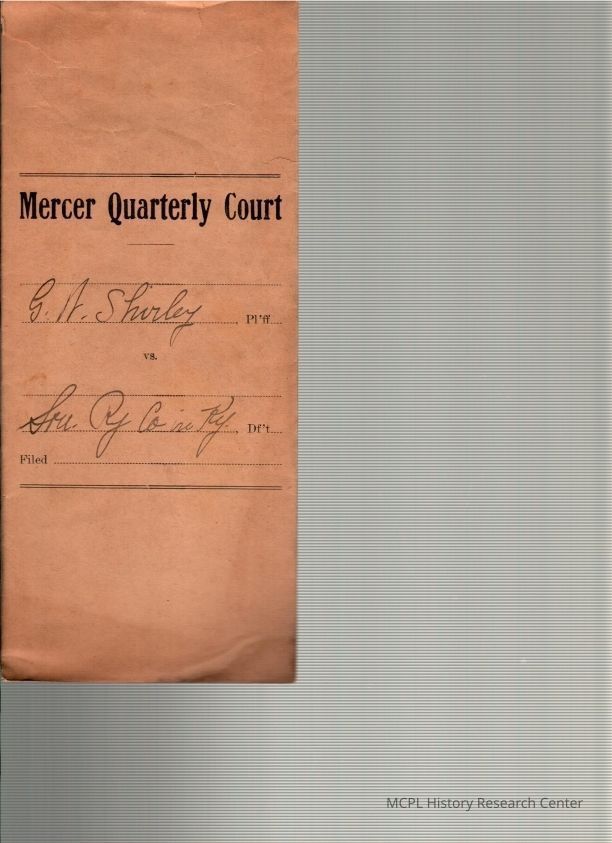 Mercer Quarterly Court
G. W. Shirley Pl'ff
vs.
Sou. Ry Co in Ky. Df't
Filed
MCPL History Research Center